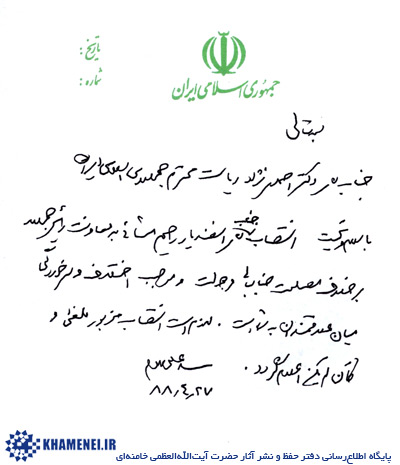 تاریخ :
شماره :
جمهوری اسلامی ایران
بسمه تعالی
جناب آقای دکتر احمدی نژاد ریاست محترم جمهوری اسلامی ایران
با سلام و تحیت انتصاب جناب آقای اسفندیار رحیم مشائی به معاونت رئیس جمهور
بر خلاف مصلحت جنابعالی و دولت و موجب اختلاف و سرخوردگی
میان علاقمندان به شما است . لازم است انتصاب مزبور ملغی و
کان لم یکن اعلام گردد .
سید علی
۸۸،۴،۲۷
KHAMENEI.IR
پایگاه اطلاع‌رسانی دفتر حفظ و نشر آثار حضرت آیت‌الله‌العظمی خامنه‌ای